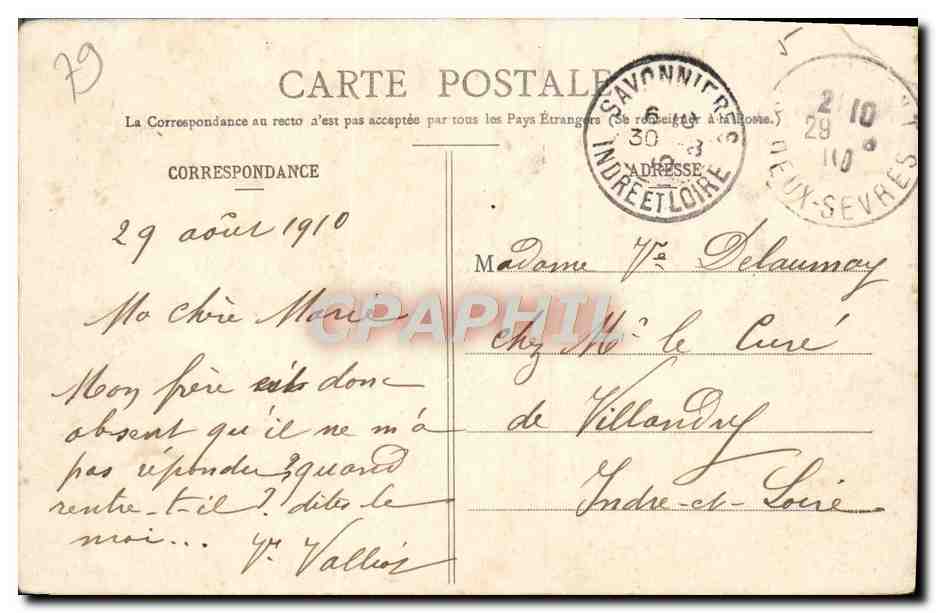 79
CARTE POSTALE
La Correspondance au recto n'est pas acceptée par tous les Pays Étrangers (Se renseigner à la Poste.)
CORRESPONDANCE
ADRESSE
SAVONNIERES
6
30 8
INDRE ET LOIRE
2 10
29 8
10
DEUX-SEVRES
29 août 1910
Ma chère Marie
Mon frère donc
absent qu'il ne m'a
pas répondu? quand
rentre-t-il? dites le
moi...
Madame Vve Delaunay
chez Mr le Curé
de Villandry
Indre-et-Loire
CPAPHIL